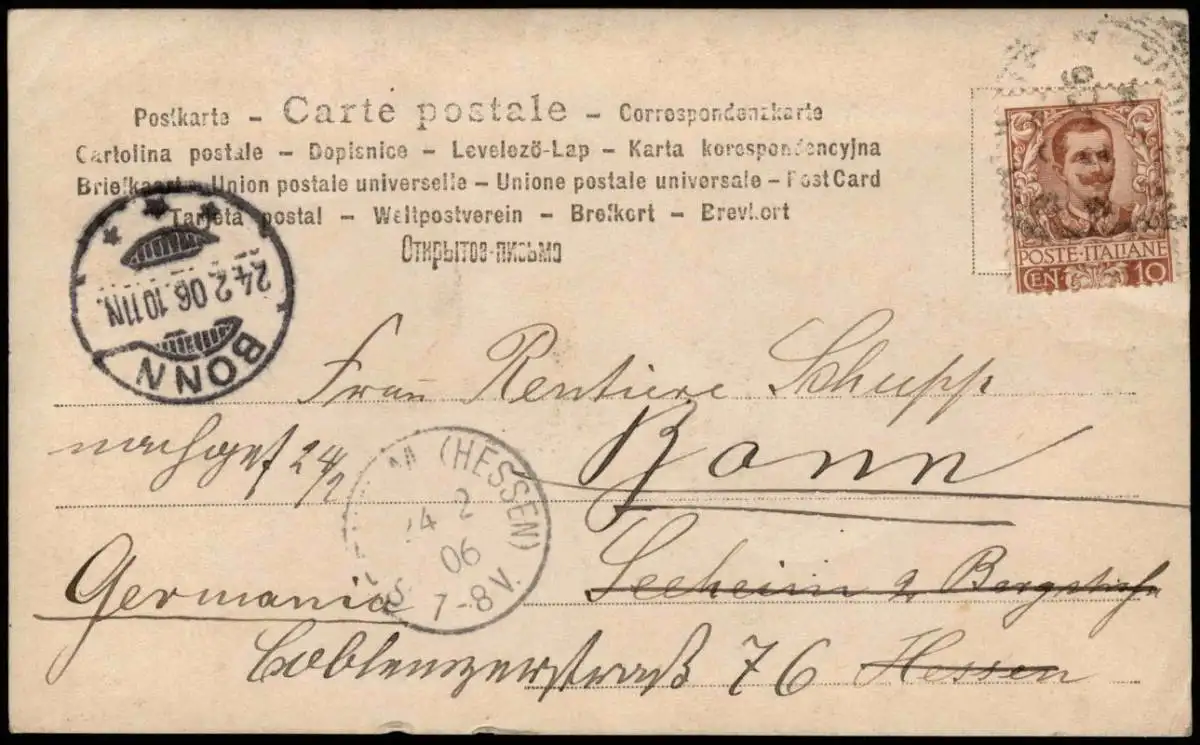 Postkarte - Carte postale - Correspondenzkarte
Cartolina postale - Dopisnice - Levelező-Lap - Karta korespondencyjna
Briefkaart - Union postale universelle - Unione postale universale - Post Card
Tarjeta postal - Weltpostverein - Brefkort - Brevkort
Открытое-письмо
POSTE·ITALIANE
CEN 10
BONN
24.2.06.10 11 N.
Frau Rentiere Schupp
nachges 24/2 Bonn
M (HESSEN)
24 2
06
7-8 V.
Germania Seeheim a Bergstraße
Coblenzerstraß 76 Hessen